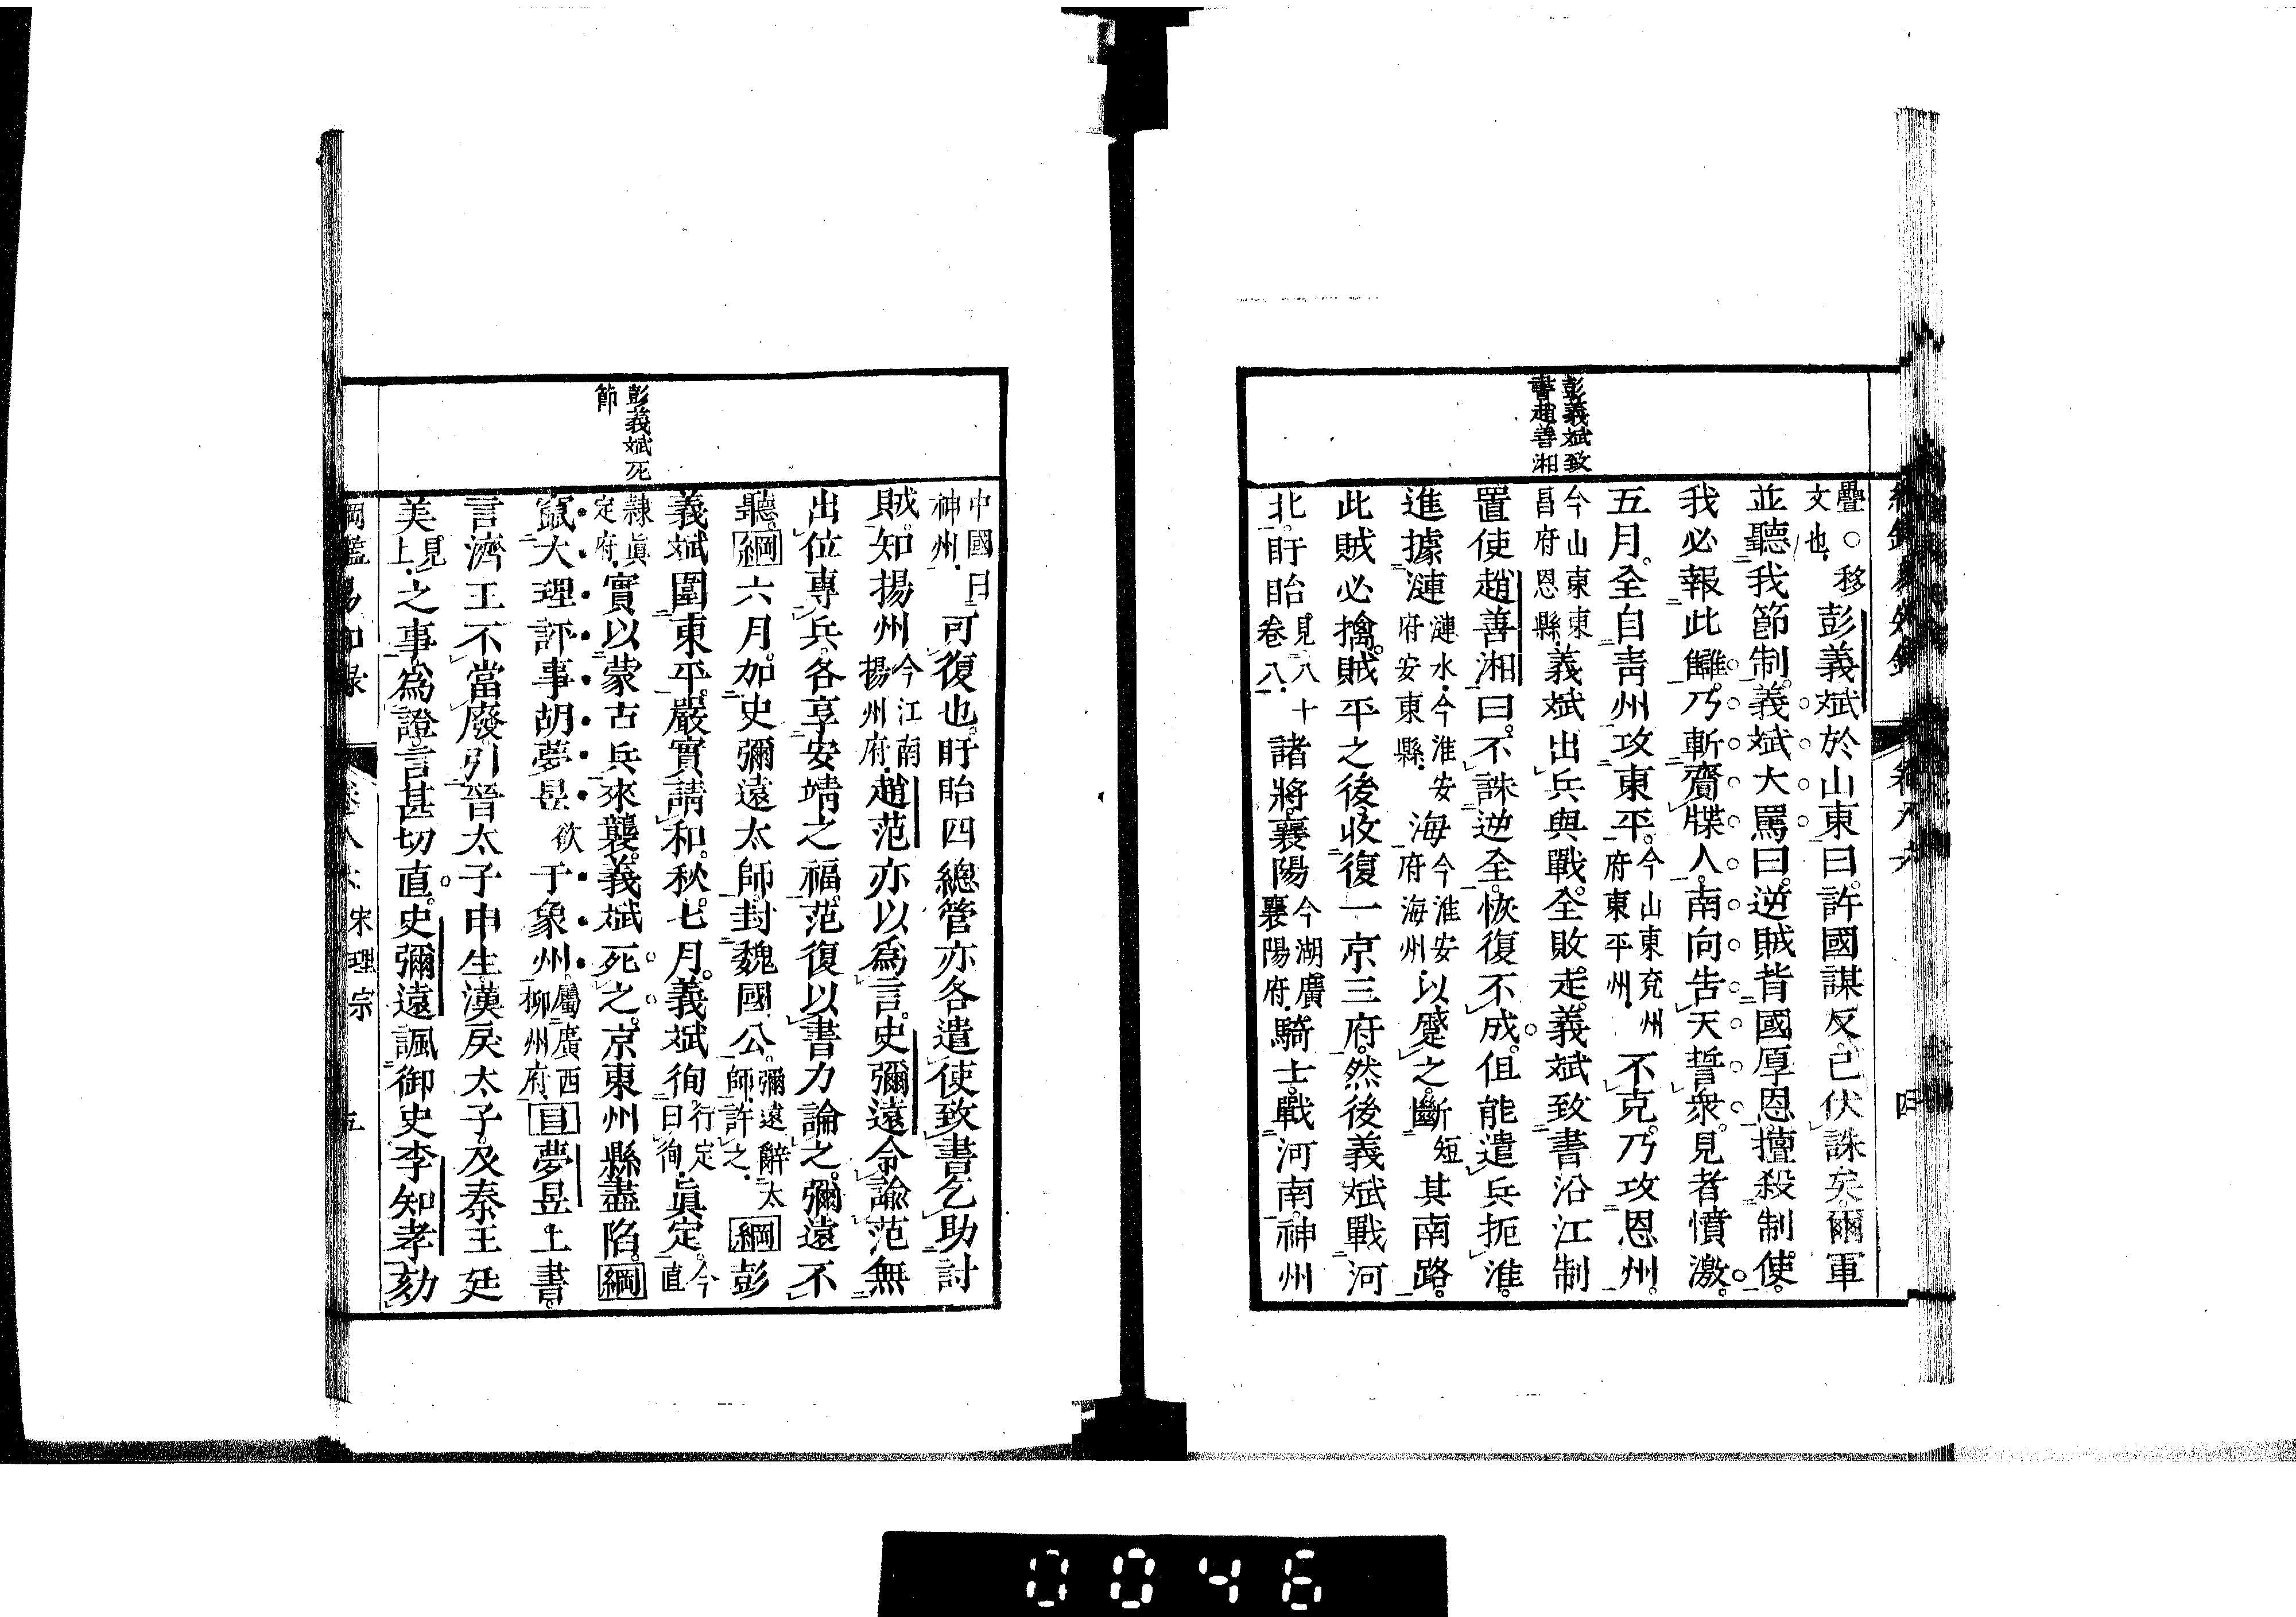 彭義斌致
書趙善湘
疊○移文也彭義斌於山東曰許國謀反已伏誅矣爾軍
並聽我節制義斌大罵曰逆賊背國厚恩擅殺制使
我必報此讎乃斬齎牒人南向告天誓衆見者憤激
五月全自青州攻東平今山東兗州府東平州不克乃攻恩州
今山東東昌府恩縣義斌出兵與戰全敗走義斌致書沿江制
置使趙善湘曰不誅逆全恢復不成但能遣兵扼淮
進據漣漣水今淮安府安東縣海今淮安府海州以蹙之斷短其南路
此賊必擒賊平之後收復一京三府然後義斌戰河
北盱眙見八十卷八諸將襄陽今湖廣襄陽府騎士戰河南神州
卷八六
四
彭義斌死
節
中國曰神州可復也盱眙四總管亦各遣使致書乞助討
賊知揚州今江南揚州府趙范亦以爲言史彌遠令諭范無
出位專兵各享安靖之福范復以書力論之彌遠不
聽綱六月加史彌遠太師封魏國公彌遠辭太師許之綱彭
義斌圍東平嚴實請和秋七月義斌徇行定曰徇眞定今直
隸眞定府實以蒙古兵來襲義斌死之京東州縣盡陷綱
竄大理評事胡夢昱欲于象州屬廣西柳州府目夢昱上書
言濟王不當廢引晉太子申生漢戾太子及秦王廷
美見上之事爲證言甚切直史彌遠諷御史李知孝劾
綱鑑易知錄 卷八六 宋理宗 五
0046